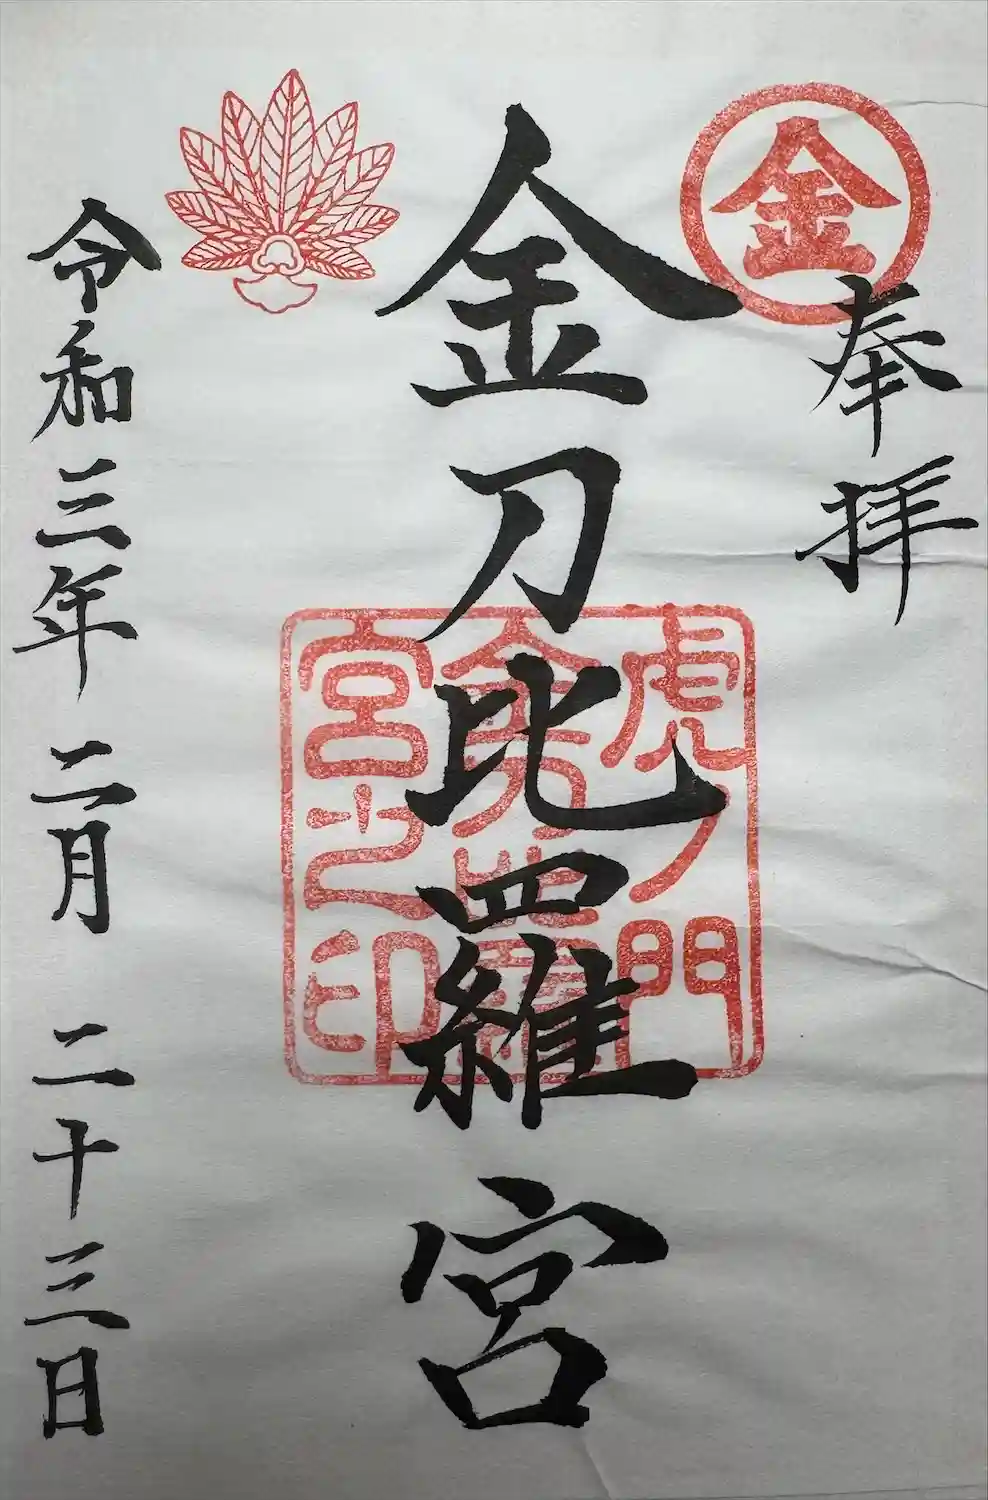 金
奉拝
金刀比羅宮
虎ノ門
金刀比羅
宮之印
令和三年 二月 二十三日